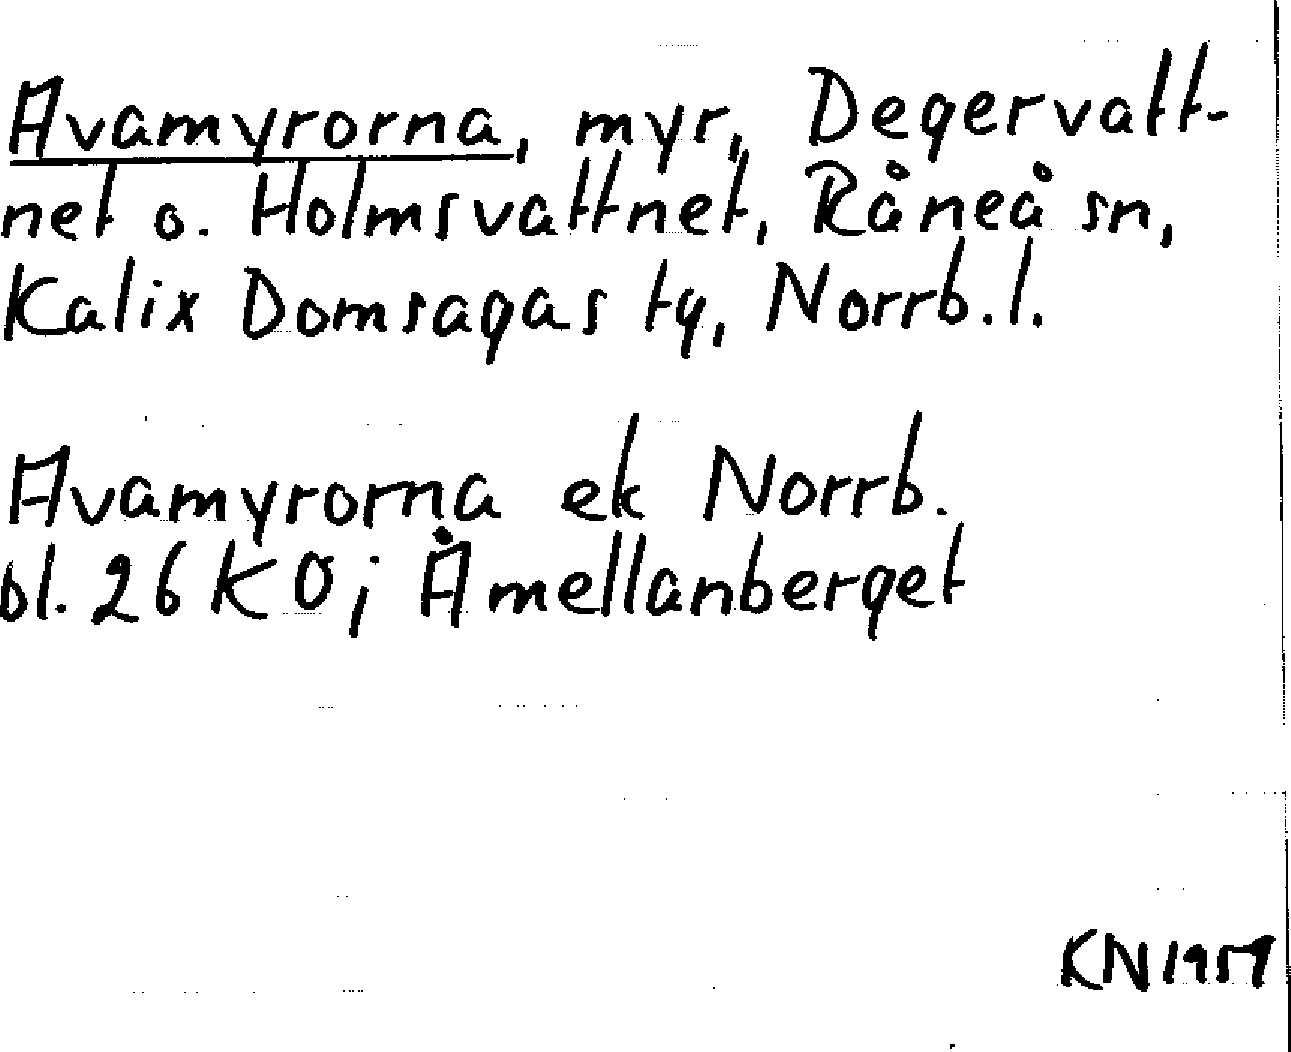 Avamyrorna, myr, Degervatt-
net o. Holmsvattnet, Råneå sn,
Kalix Domsagas tg, Norrb. l.
Avamyrorna ek Norrb.
bl. 26 K O; Åmellanberget
KN 1959